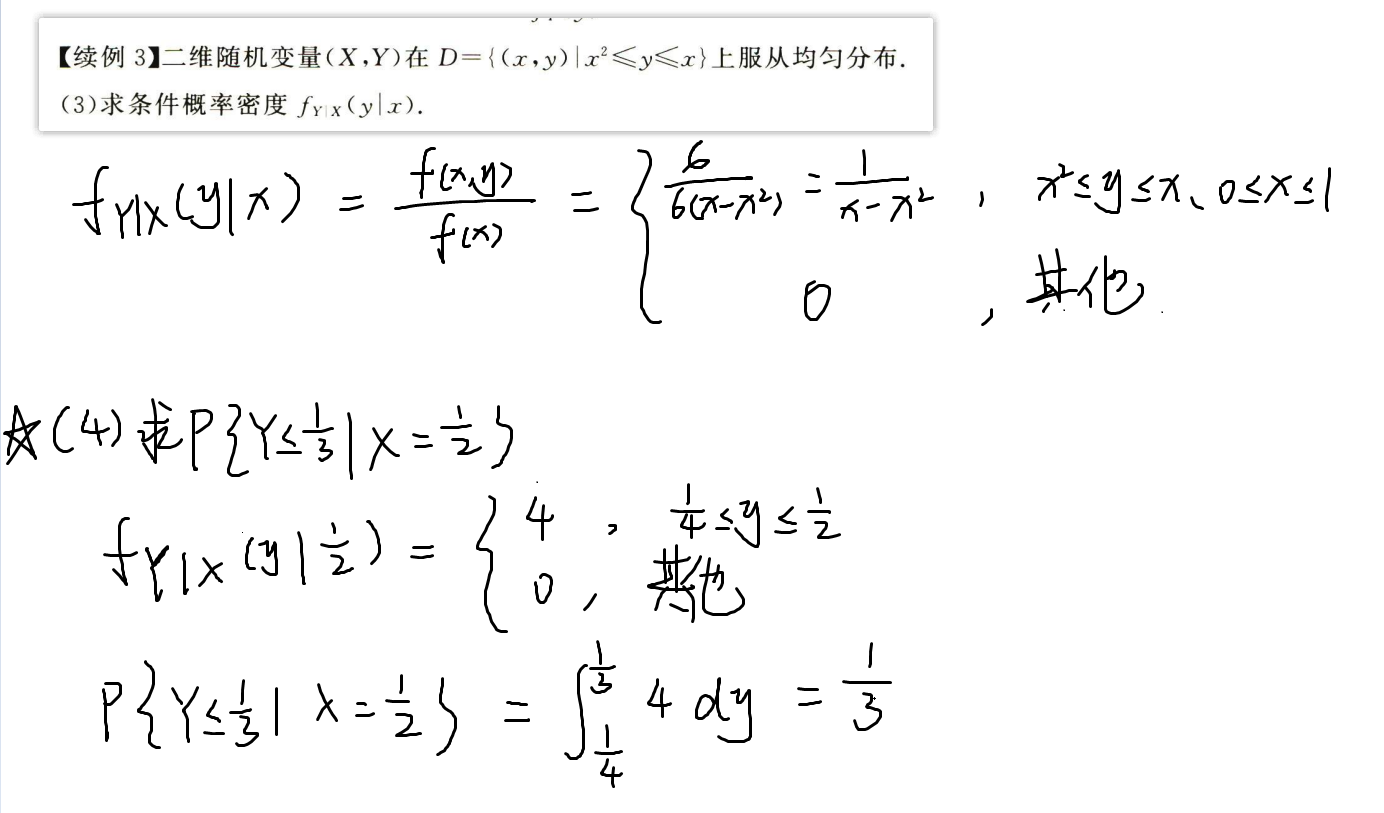 【续例 3】二维随机变量(X,Y)在 D={(x,y)|x²≤y≤x}上服从均匀分布.
(3)求条件概率密度 f_{Y|X}(y|x).
f_{Y|X}(y|x) = f(x,y)/f(x) = { 6/6(x-x²) = 1/x-x² , x²≤y≤x、0≤x≤1
0 , 其他.
☆(4)求P{Y≤1/3|X=1/2}
f_{Y|X}(y|1/2) = { 4 , 1/4≤y≤1/2
0 , 其他
P{Y≤1/3|X=1/2} = ∫_{1/4}^{1/3} 4 dy = 1/3